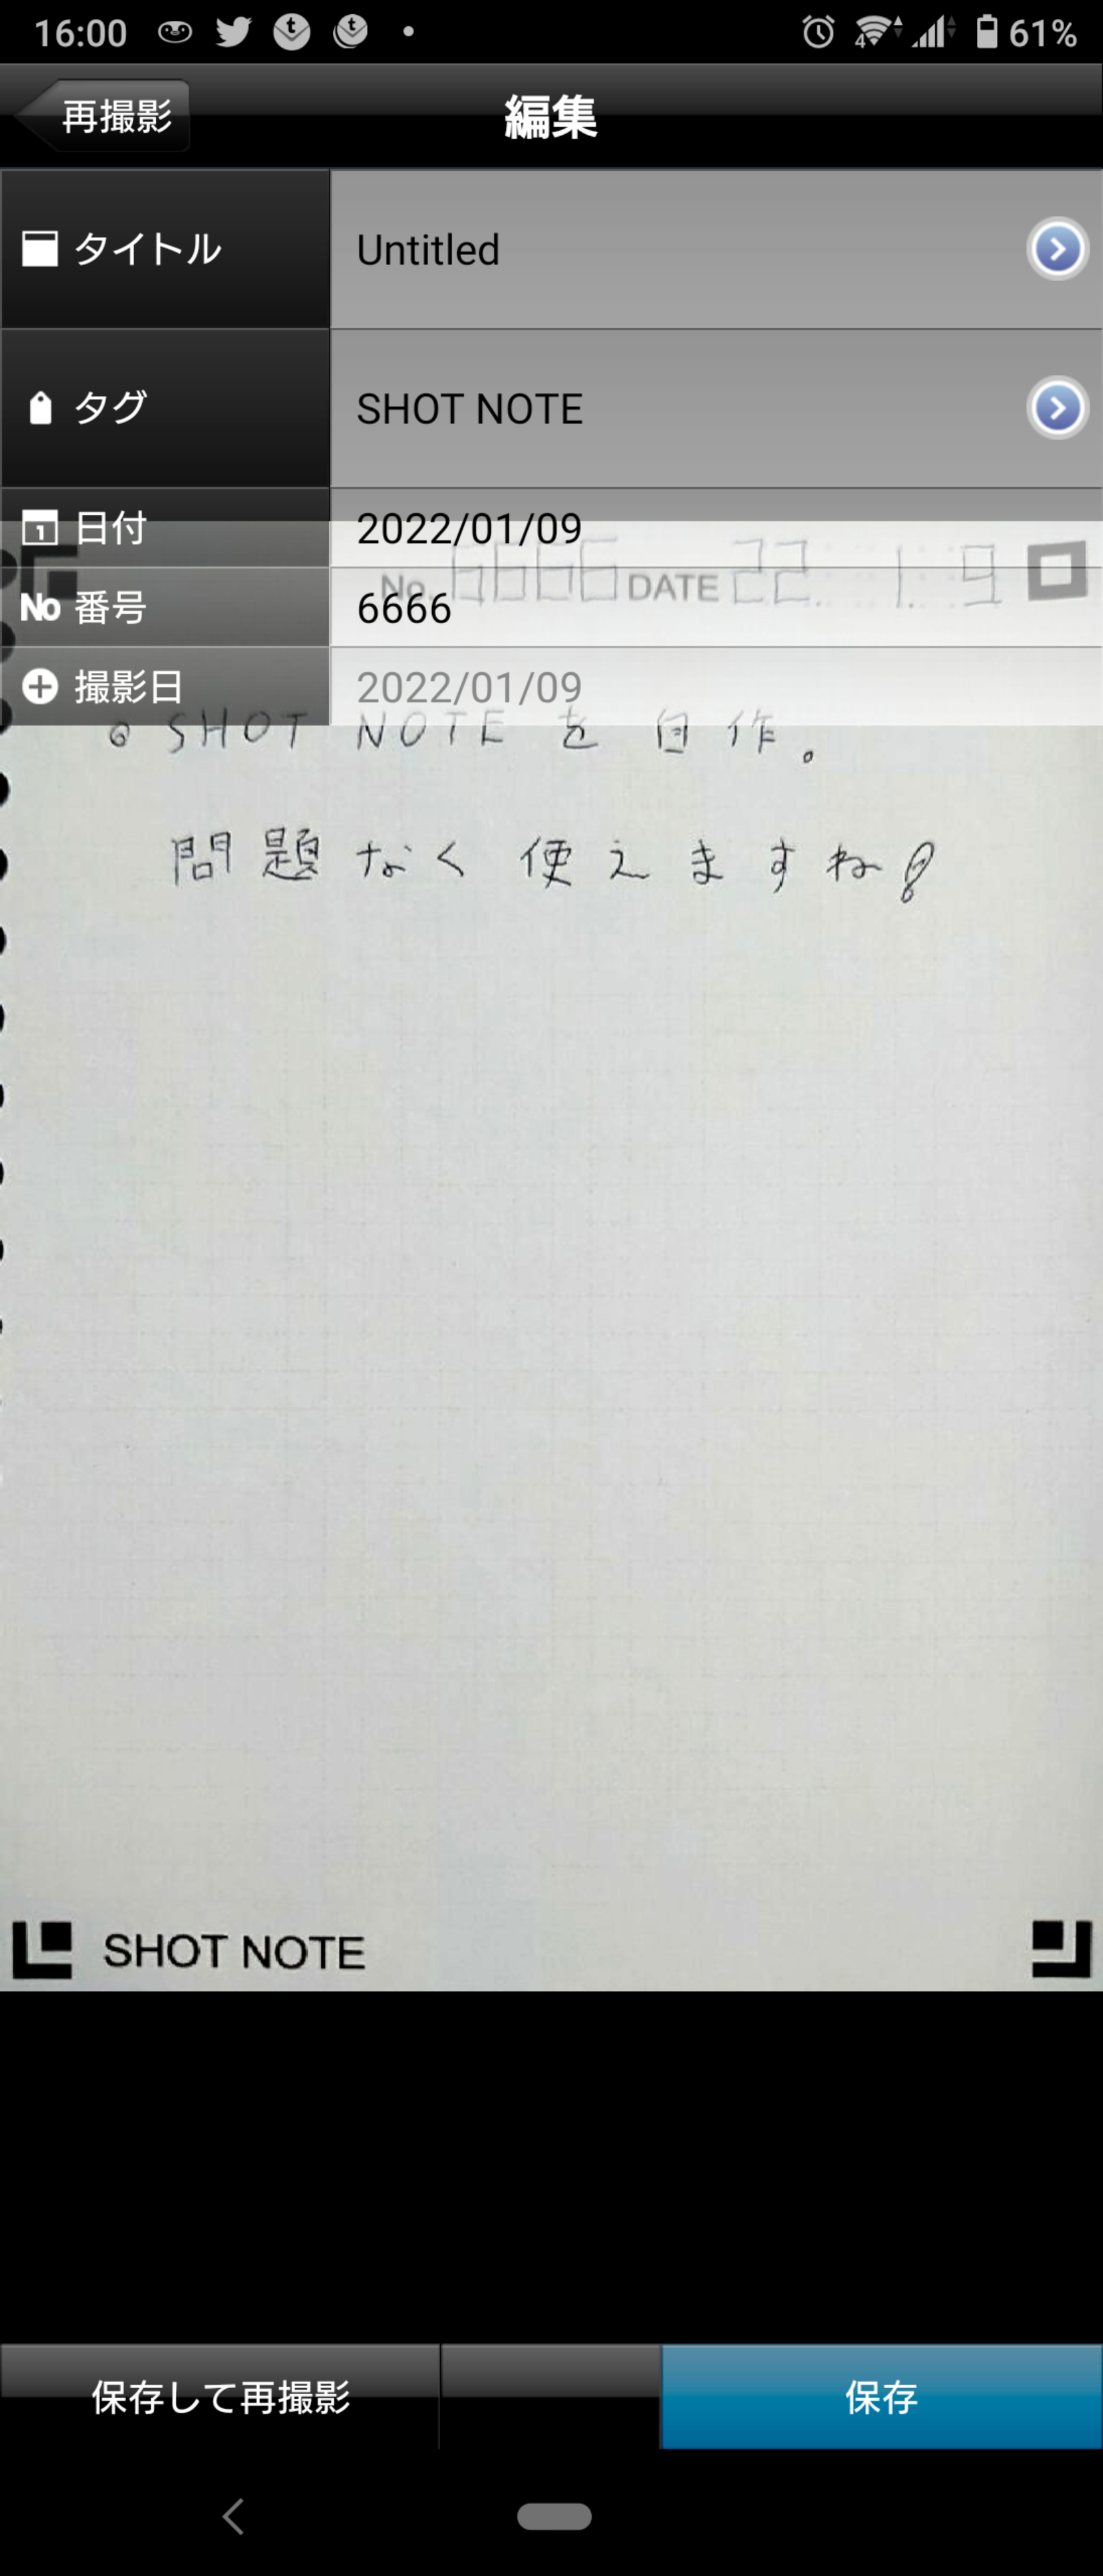 16:00 61%
再撮影 編集
タイトル Untitled
タグ SHOT NOTE
日付 2022/01/09
No. 6666 DATE 22. 1. 9
No 番号 6666
撮影日 2022/01/09
◎ SHOT NOTE を自作。
問題なく使えますね!
SHOT NOTE
保存して再撮影 保存